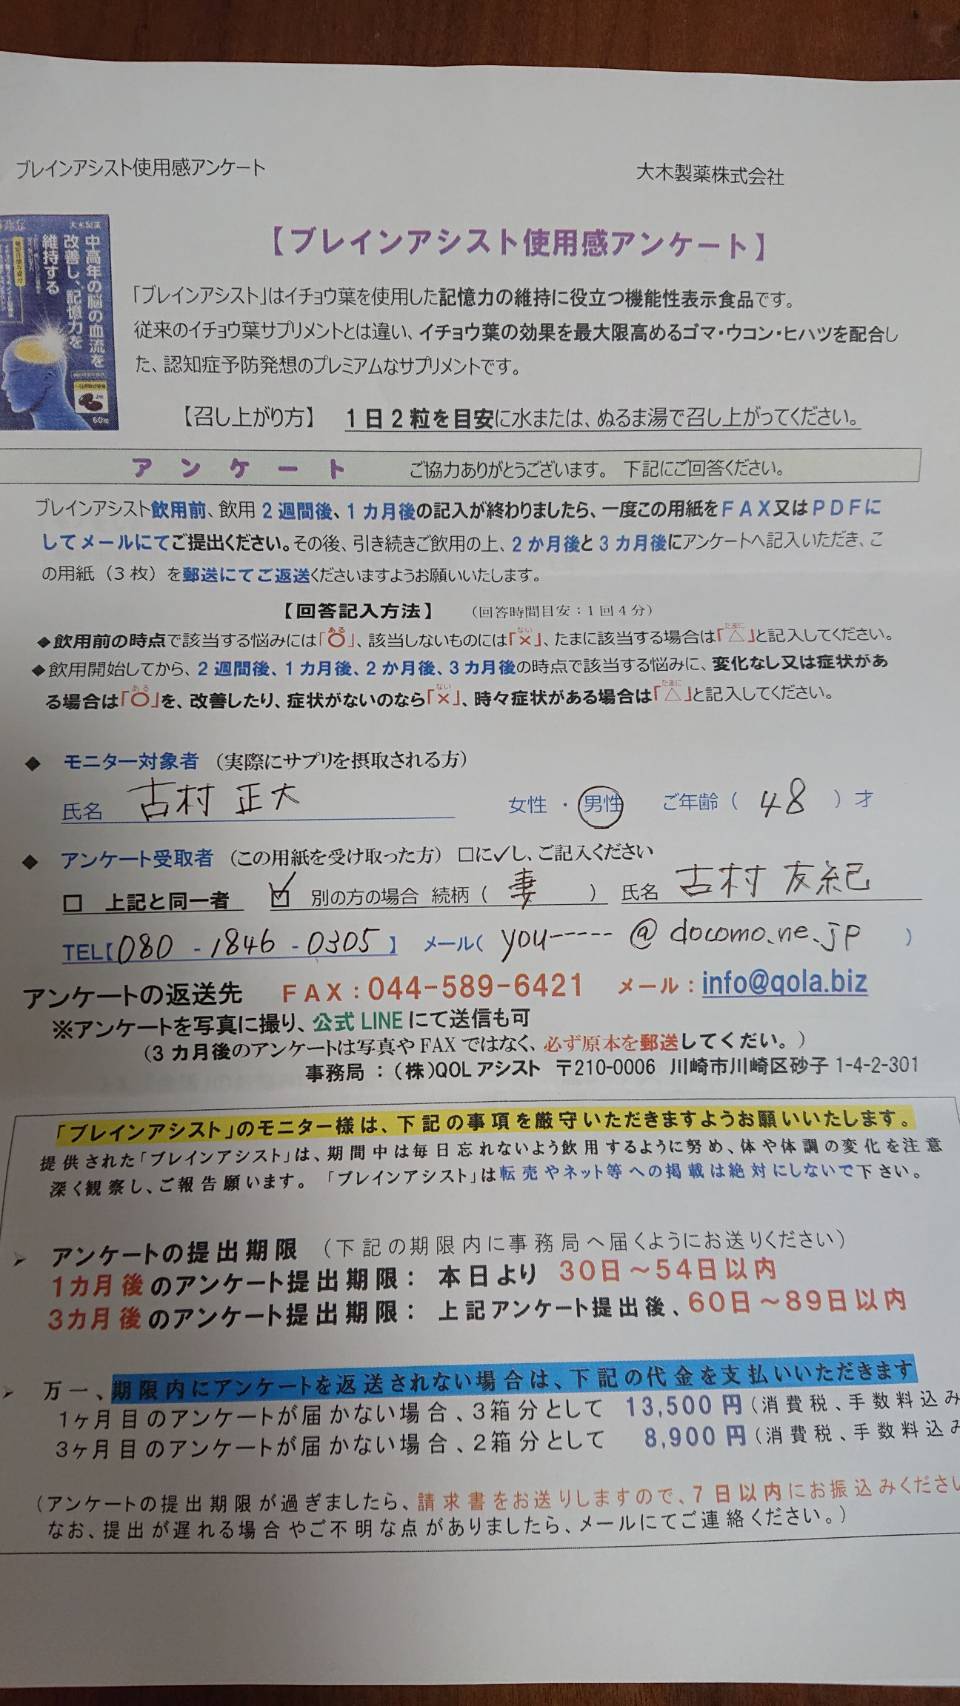 ブレインアシスト使用感アンケート 大木製薬株式会社
大木製薬
中高年の脳の血流を
改善し、記憶力を
維持する
60粒
【ブレインアシスト使用感アンケート】
「ブレインアシスト」はイチョウ葉を使用した記憶力の維持に役立つ機能性表示食品です。
従来のイチョウ葉サプリメントとは違い、イチョウ葉の効果を最大限高めるゴマ・ウコン・ヒハツを配合し
た、認知症予防発想のプレミアムなサプリメントです。
【召し上がり方】 1日2粒を目安に水または、ぬるま湯で召し上がってください。
アンケート ご協力ありがとうございます。 下記にご回答ください。
ブレインアシスト飲用前、飲用2週間後、1カ月後の記入が終わりましたら、一度この用紙をFAX又はPDFに
してメールにてご提出ください。その後、引き続きご飲用の上、2か月後と3カ月後にアンケートへ記入いただき、こ
の用紙（3枚）を郵送にてご返送くださいますようお願いいたします。
【回答記入方法】 （回答時間目安：1回4分）
◆飲用前の時点で該当する悩みには「〇」、該当しないものには「×」、たまに該当する場合は「△」と記入してください。
◆飲用開始してから、2週間後、1カ月後、2か月後、3カ月後の時点で該当する悩みに、変化なし又は症状があ
る場合は「〇」を、改善したり、症状がないのなら「×」、時々症状がある場合は「△」と記入してください。
◆ モニター対象者 （実際にサプリを摂取される方）
氏名 古村 正大 女性 ・ 男性 ご年齢（ 48 ）才
◆ アンケート受取者 （この用紙を受け取った方） □に✓し、ご記入ください
□ 上記と同一者 ☑ 別の方の場合 続柄（ 妻 ） 氏名 古村 友紀
TEL【080 - 1846 - 0305】 メール（ you----- @ docomo.ne.jp ）
アンケートの返送先 FAX：044-589-6421 メール：info@qola.biz
※アンケートを写真に撮り、公式LINEにて送信も可
（3カ月後のアンケートは写真やFAXではなく、必ず原本を郵送してくだい。）
事務局：（株）QOLアシスト 〒210-0006 川崎市川崎区砂子1-4-2-301
「ブレインアシスト」のモニター様は、下記の事項を厳守いただきますようお願いいたします。
提供された「ブレインアシスト」は、期間中は毎日忘れないよう飲用するように努め、体や体調の変化を注意
深く観察し、ご報告願います。「ブレインアシスト」は転売やネット等への掲載は絶対にしないで下さい。
➢ アンケートの提出期限 （下記の期限内に事務局へ届くようにお送りください）
1カ月後のアンケート提出期限： 本日より 30日～54日以内
3カ月後のアンケート提出期限： 上記アンケート提出後、60日～89日以内
➢ 万一、期限内にアンケートを返送されない場合は、下記の代金を支払いいただきます
1ヶ月目のアンケートが届かない場合、3箱分として 13,500円（消費税、手数料込み
3ヶ月目のアンケートが届かない場合、2箱分として 8,900円（消費税、手数料込み
（アンケートの提出期限が過ぎましたら、請求書をお送りしますので、7日以内にお振込みくださ
なお、提出が遅れる場合やご不明な点がありましたら、メールにてご連絡ください。）